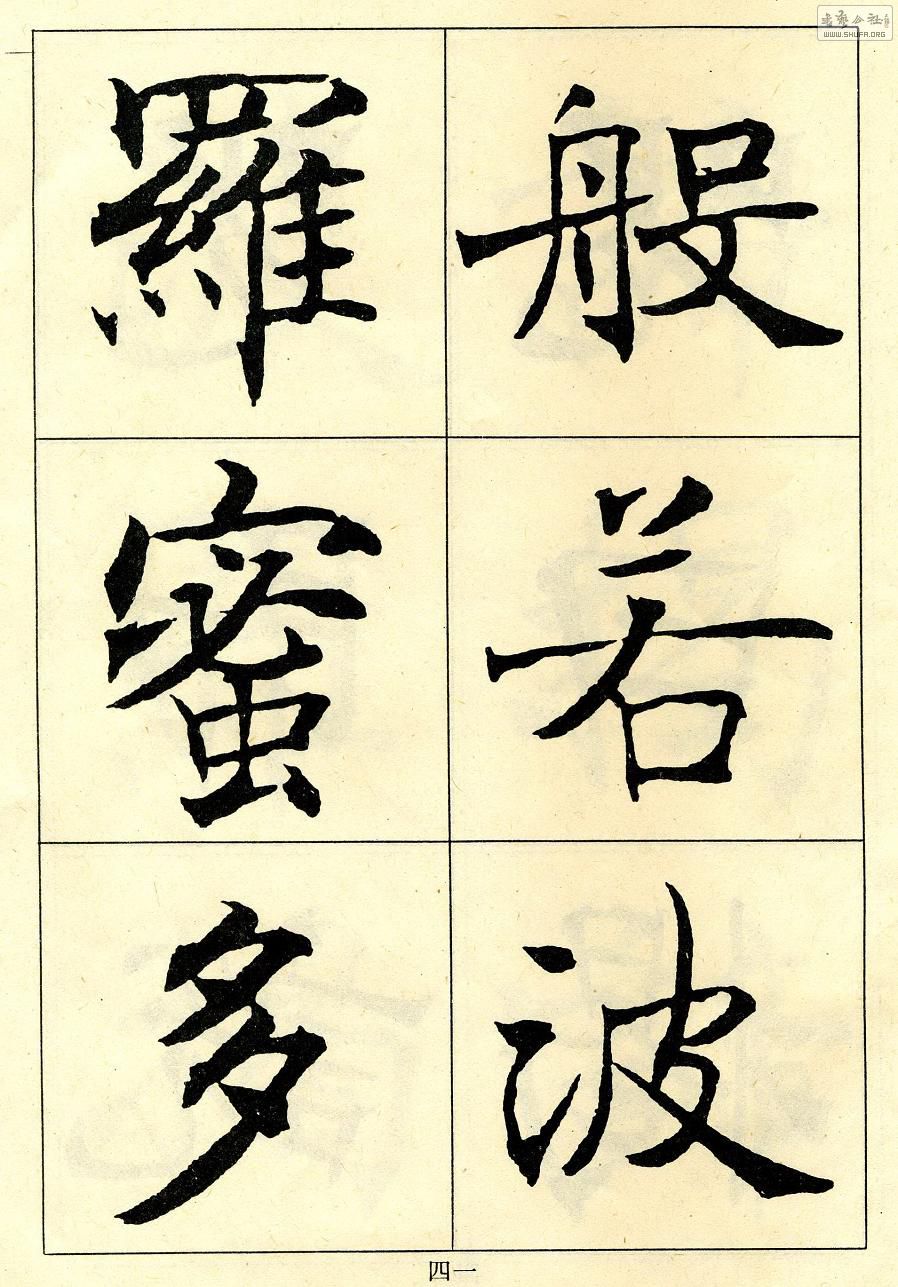 般若波
羅蜜多
四一
書藝公社
WWW.SHUFA.ORG